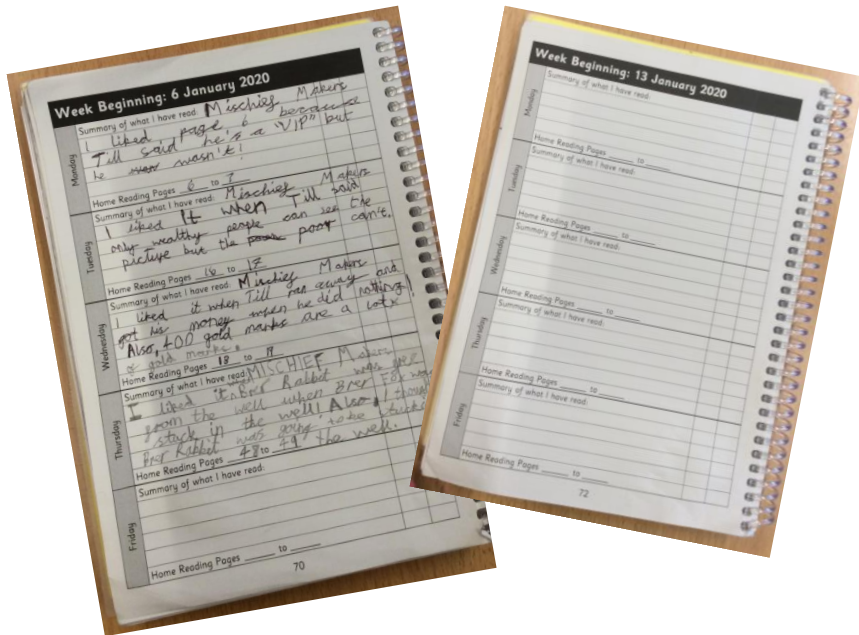 Week Beginning: 6 January 2020
Monday
Summary of what I have read: Mischief Makers
I liked page 6 because
Till said he's a "VIP" but
he wasn't!
Home Reading Pages 6 to 7
Tuesday
Summary of what I have read: Mischief Makers
I liked It when Till said
only wealthy people can see the
picture but the poor can't.
Home Reading Pages 16 to 17
Wednesday
Summary of what I have read: Mischief Makers
I liked it when Till ran away and
got his money when he did nothing!
Also, 400 gold marks are a lots
of gold marks.
Home Reading Pages 18 to 19
Thursday
Summary of what I have read: MISCHIEF Makers
I liked it when Brer Rabbit was
from the well when Brer Fox was
stuck in the well! Also, I thought
Brer Rabbit was going to be stuck
Home Reading Pages 48 to 49 the well.
Friday
Summary of what I have read:
Home Reading Pages ____ to ____
70
Week Beginning: 13 January 2020
Monday
Summary of what I have read:
Home Reading Pages ____ to ____
Tuesday
Summary of what I have read:
Home Reading Pages ____ to ____
Wednesday
Summary of what I have read:
Home Reading Pages ____ to ____
Thursday
Summary of what I have read:
Home Reading Pages ____ to ____
Friday
Summary of what I have read:
Home Reading Pages ____ to ____
72